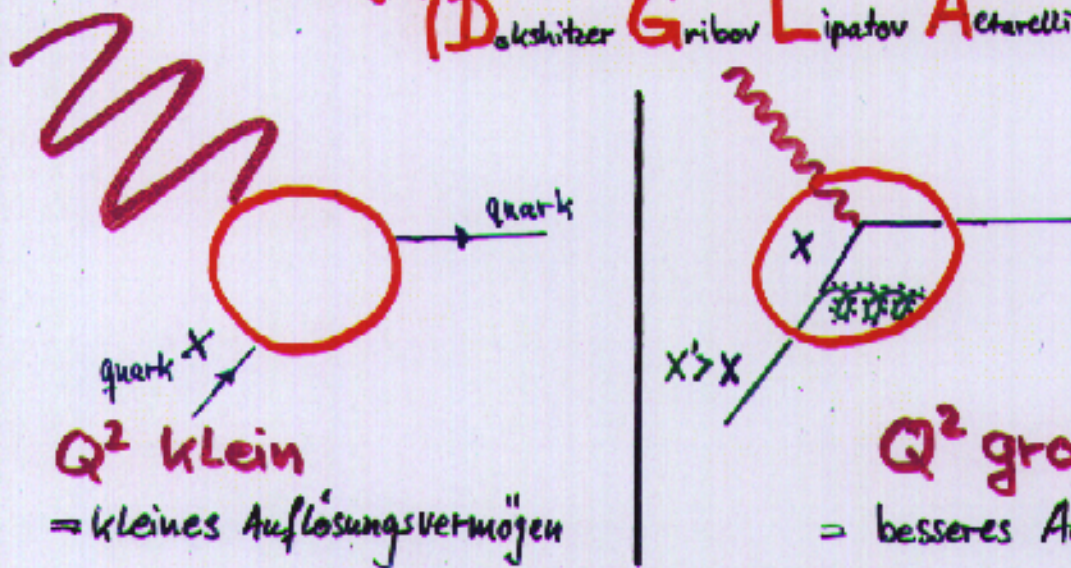 (Dokshitzer Gribov Lipatov Altarelli
quark
X
quark X
X'>X
Q² klein
Q² gro
= kleines Auflösungsvermögen
= besseres A